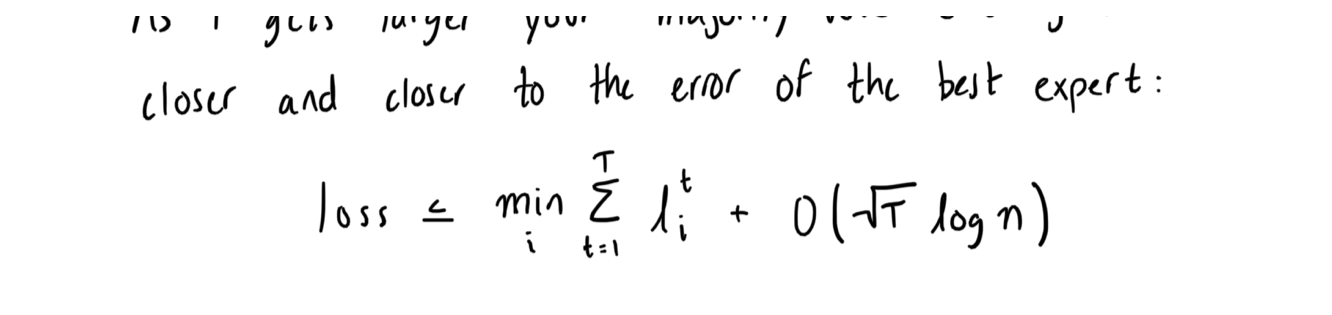 As T gets larger your majority
closer and closer to the error of the best expert:
loss ≤ min_i Σ_{t=1}^{T} l_i^t + O(√T log n)